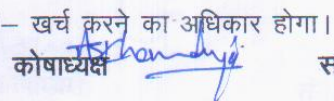 – खर्च करने का अधिकार होगा।
कोषाध्यक्ष स